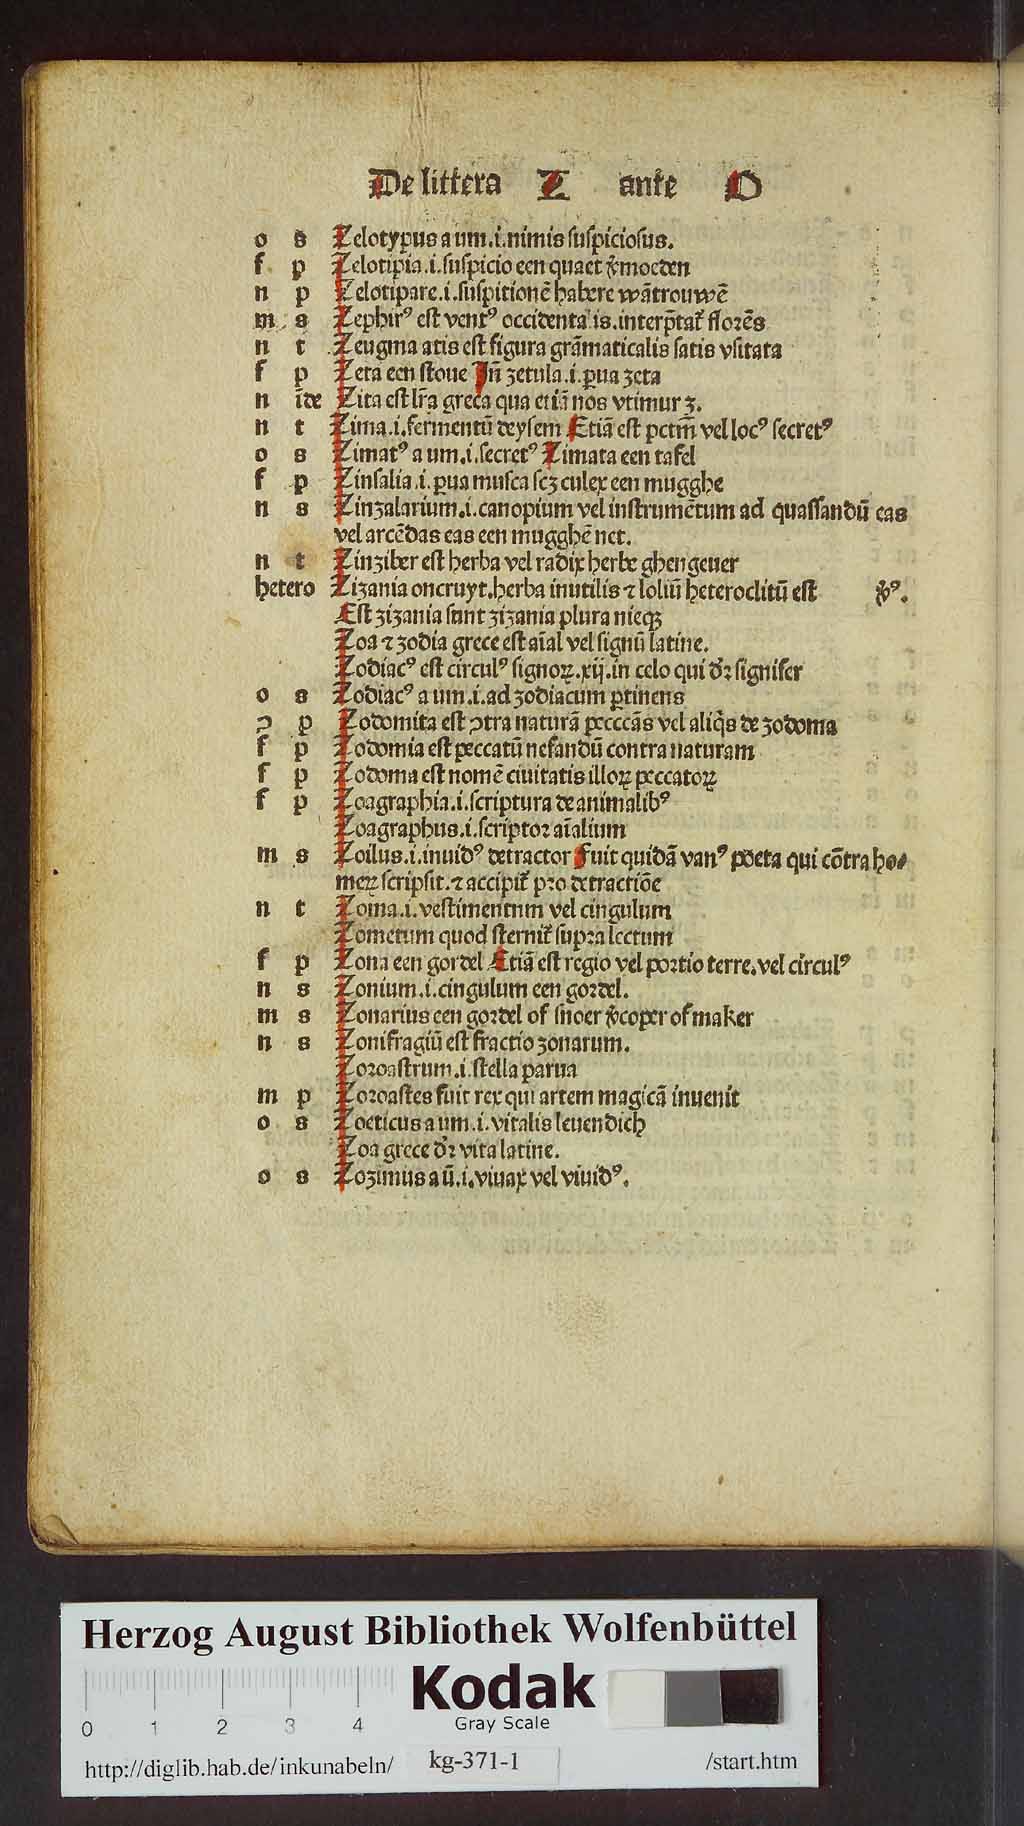 De littera Z ante O
o s Zelotypus a um .i. nimis suspiciosus.
f p Zelotipia .i. suspicio een quaet v̾moeden
n p Zelotipare .i. suspitionē habere wātrouwē
m s Zephirꝰ est ventꝰ occidentalis. interp̄tat᷑ florēs
n t Zeugma atis est figura grāmaticalis satis vsitata
f p Zeta een stoue Jn̄ zetula .i. ꝑua zeta
n īde Zita est lr̄a greca qua etiā nos vtimur z.
n t Zima .i. fermentū deysem Etiā est pctm̄ vel locꝰ secretꝰ
o s Zimatꝰ a um .i. secretꝰ Zimata een tafel
f p Zinsalia .i. ꝑua musca scz culex een mugghe
n s Zinzalarium .i. canopium vel instrumētum ad quassandū eas
vel arcēdas eas een mugghē net.
n t Zinziber est herba vel radix herbe ghengeuer
hetero Zizania oncruyt. herba inutilis ⁊ loliū heteroclitū est v̾ꝰ.
Est zizania sunt zizania plura nieqꝫ
Zoa ⁊ zodia grece est aīal vel signū latine.
Zodiacꝰ est circulꝰ signoꝝ .xij. in celo qui dr̄ signifer
o s Zodiacꝰ a um .i. ad zodiacum ꝑtinens
ꝯ p Zodomita est ꝯtra naturā peccās vel aliq̄s de zodoma
f p Zodomia est peccatū nefandū contra naturam
f p Zodoma est nomē ciuitatis illoꝝ peccatoꝝ
f p Zoagraphia .i. scriptura de animalibꝰ
Zoagraphus .i. scriptor aīalium
m s Zoilus .i. inuidꝰ detractor Fuit quidā vanꝰ poeta qui cōtra ho-
meꝝ scripsit. ⁊ accipit᷑ pro detractiōe
n t Zoma .i. vestimentum vel cingulum
Zometum quod sternit᷑ supra lectum
f p Zona een gordel Etiā est regio vel portio terre. vel circulꝰ
n s Zonium .i. cingulum een gordel.
m s Zonarius een gordel of snoer v̾coper of maker
n s Zonifragiū est fractio zonarum.
Zoroastrum .i. stella parua
m p Zoroastes fuit rex qui artem magicā inuenit
o s Zoeticus a um .i. vitalis leuendich
Zoa grece dr̄ vita latine.
o s Zozimus a ū .i. viuax vel viuidꝰ.
Herzog August Bibliothek Wolfenbüttel
Kodak
Gray Scale
0 1 2 3 4
http://diglib.hab.de/inkunabeln/ kg-371-1 /start.htm